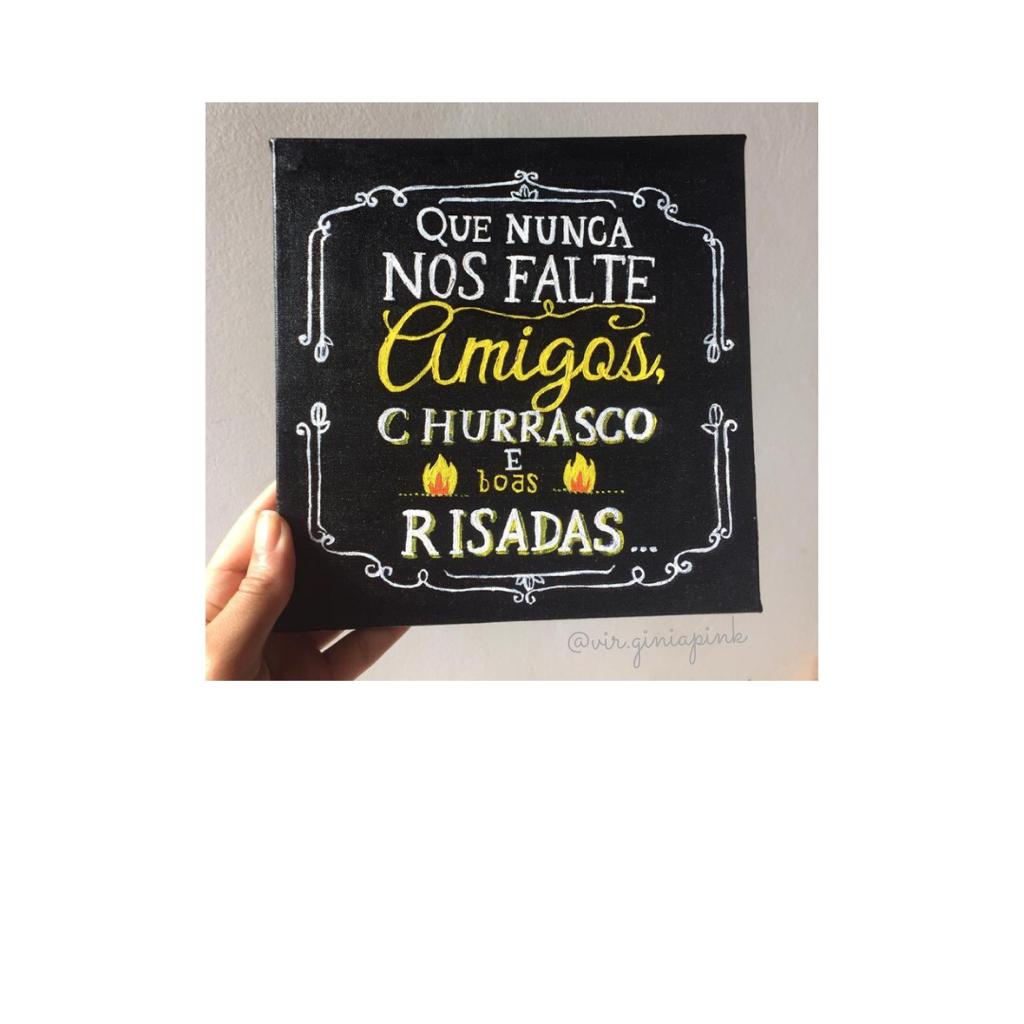 QUE NUNCA
NOS FALTE
Amigos,
CHURRASCO
E
boas
RISADAS...
@vir.giniapink